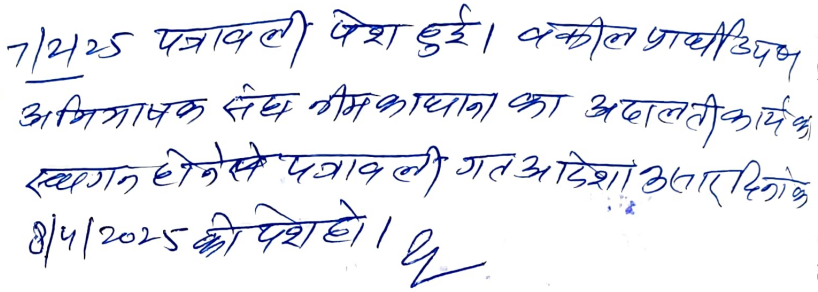 7/2/25 पत्रावली पेश हुई। वकील प्रार्थी उप०
अभिभाषक संघ नीमकाथाना का अदालती कार्य का
स्थगन होने से पत्रावली गत आदेशानुसार दिनांक
8/4/2025 को पेश हो।